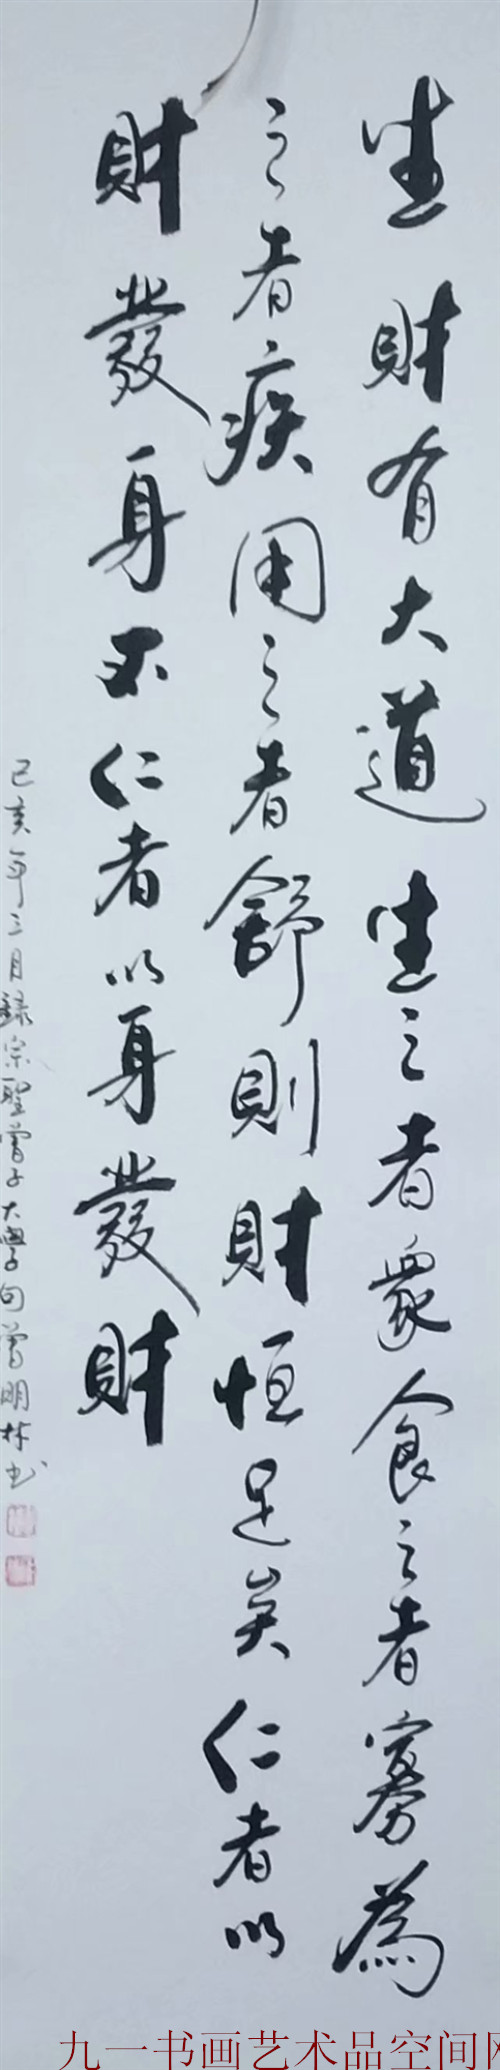 生財有大道生之者衆食之者寡為
之者疾用之者舒則財恒足矣仁者以
財發身不仁者以身發財
己亥年三月録宗聖曾子大學句曾明林书
九一书画艺术品空间网